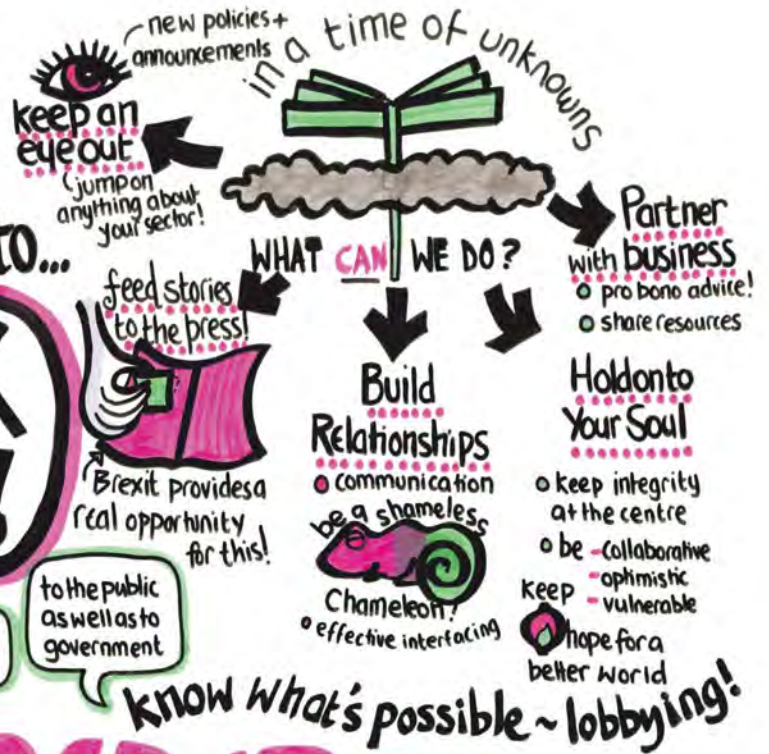 new policies +
announcements
in a time of unknowns
keep an
eye out
jump on
anything about
your sector!
TO...
WHAT CAN WE DO?
Partner
with business
pro bono advice!
share resources
feed stories
to the press!
Brexit provides a
real opportunity
for this!
Build
Relationships
communication
be a shameless
Chameleon!
effective interfacing
Hold onto
Your Soul
keep integrity
at the centre
be - collaborative
- optimistic
- vulnerable
keep
hope for a
better world
to the public
as well as to
government
know what's possible ~ lobbying!